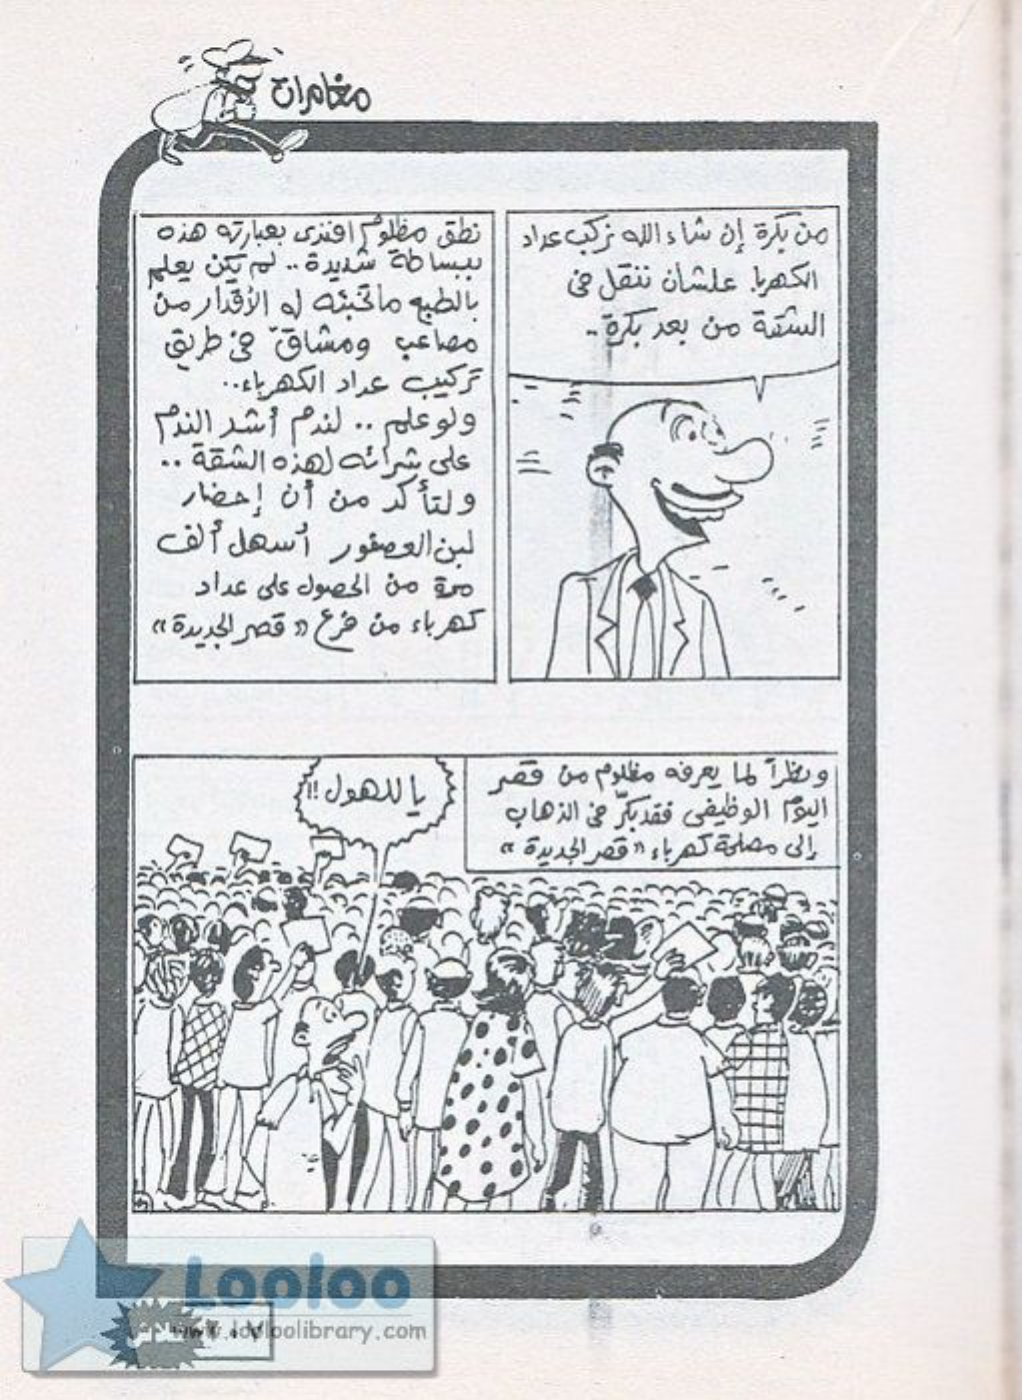 مغامرات
من بكرة إن شاء الله نركب عداد
الكهربا. علشان ننقل فى
الشقة من بعد بكرة ..
نطق مظلوم افندى بعبارته هذه
ببساطة شديدة .. لم يكن يعلم
بالطبع ماتخبئه له الأقدار من
مصاعب ومشاقّ فى طريق
تركيب عداد الكهرباء..
ولو علم .. لندم أشد الندم
على شرائه لهذه الشقة ..
ولتأكد من أن إحضار
لبن العصفور أسهل ألف
مرة من الحصول على عداد
كهرباء من فرع «قصر الجديدة»
ونظراً لما يعرفه مظلوم من قصر
اليوم الوظيفى فقد بكّر فى الذهاب
إلى مصلحة كهرباء «قصر الجديدة»
يا للهول !!
Looloo
www.looloolibrary.com